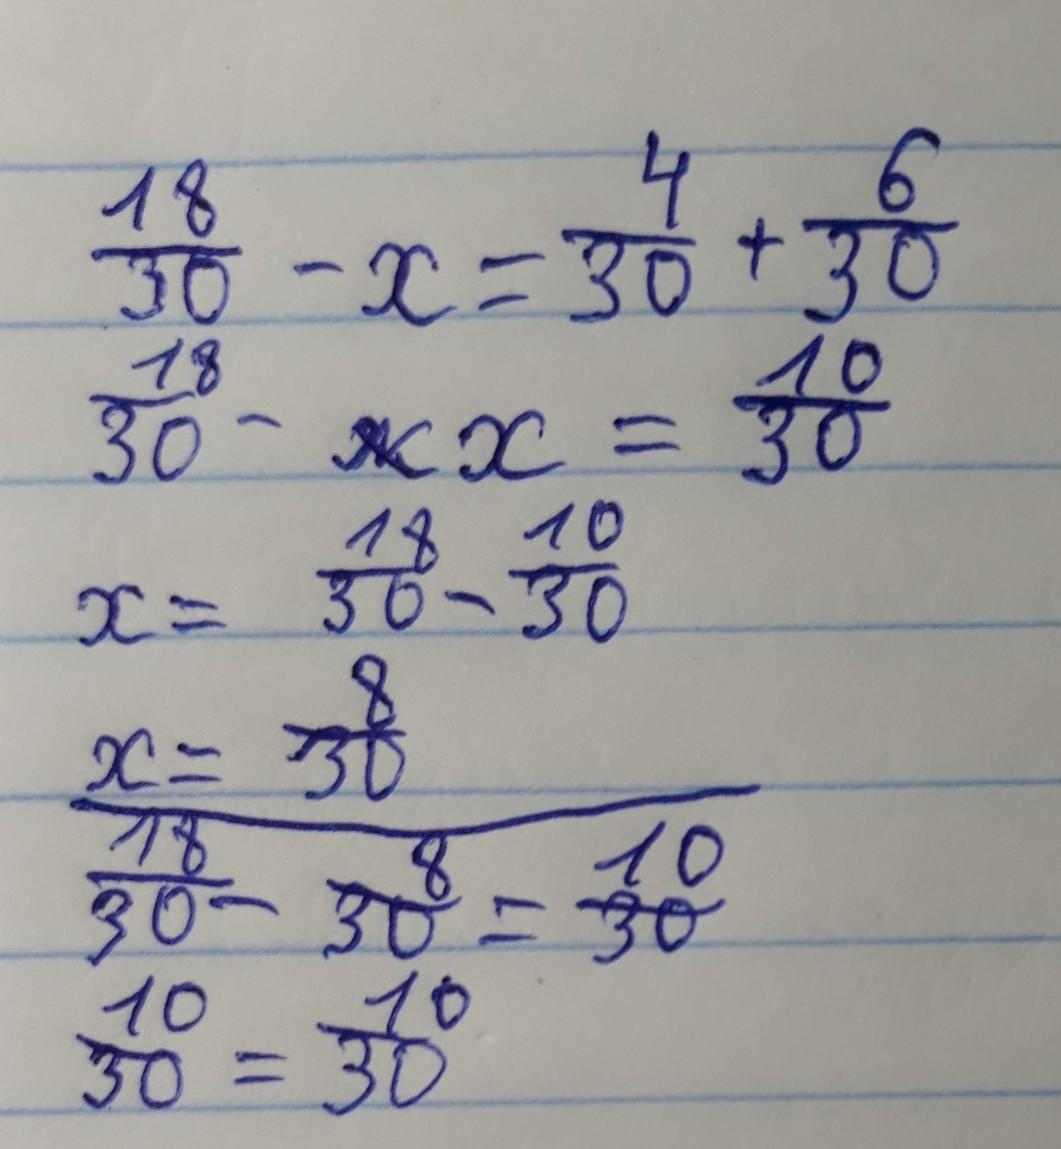 18/30 - x = 4/30 + 6/30
18/30 - x = 10/30
x = 18/30 - 10/30
x = 8/30
18/30 - 8/30 = 10/30
10/30 = 10/30